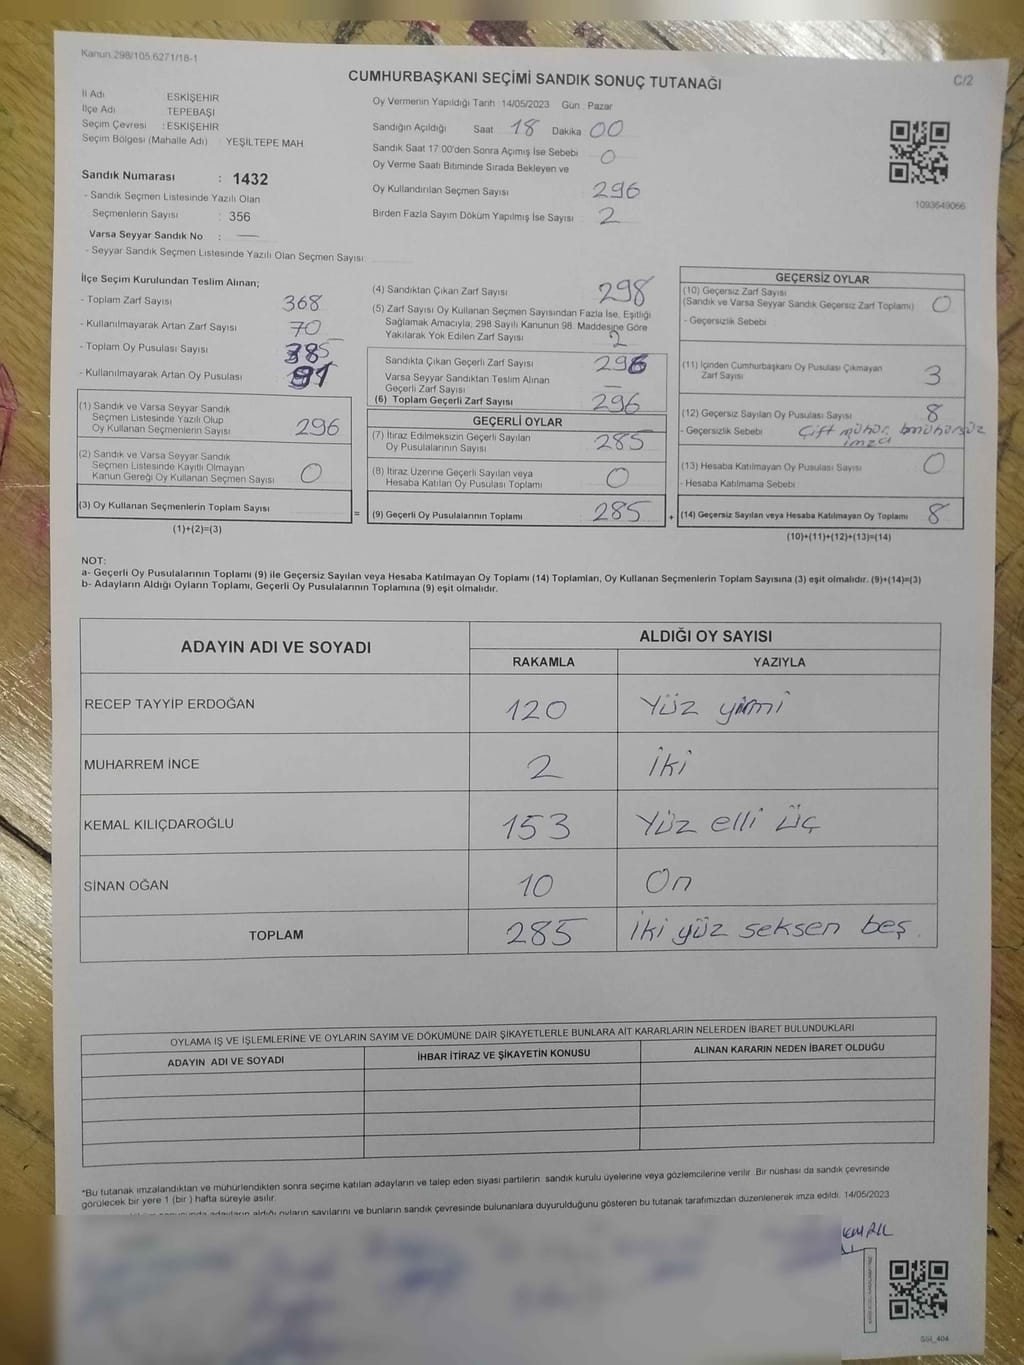 Kanun.298/105,6271/18-1
CUMHURBAŞKANI SEÇİMİ SANDIK SONUÇ TUTANAĞI
C/2
İl Adı : ESKİŞEHİR
İlçe Adı : TEPEBAŞI
Seçim Çevresi : ESKİŞEHİR
Seçim Bölgesi (Mahalle Adı) : YEŞİLTEPE MAH
Sandık Numarası : 1432
- Sandık Seçmen Listesinde Yazılı Olan
Seçmenlerin Sayısı : 356
Varsa Seyyar Sandık No : —
- Seyyar Sandık Seçmen Listesinde Yazılı Olan Seçmen Sayısı
Oy Vermenin Yapıldığı Tarih :14/05/2023 Gün : Pazar
Sandığın Açıldığı Saat 18 Dakika 00
Sandık Saat 17:00'den Sonra Açımış İse Sebebi 0
Oy Verme Saati Bitiminde Sırada Bekleyen ve
Oy Kullandırılan Seçmen Sayısı 296
Birden Fazla Sayım Döküm Yapılmış İse Sayısı 2
1093649066
İlçe Seçim Kurulundan Teslim Alınan;
- Toplam Zarf Sayısı 368
- Kullanılmayarak Artan Zarf Sayısı 70
- Toplam Oy Pusulası Sayısı 385
- Kullanılmayarak Artan Oy Pusulası
(1) Sandık ve Varsa Seyyar Sandık
Seçmen Listesinde Yazılı Olup
Oy Kullanan Seçmenlerin Sayısı 296
(2) Sandık ve Varsa Seyyar Sandık
Seçmen Listesinde Kayıtlı Olmayan
Kanun Gereği Oy Kullanan Seçmen Sayısı 0
(3) Oy Kullanan Seçmenlerin Toplam Sayısı
(1)+(2)=(3)
(4) Sandıktan Çıkan Zarf Sayısı 298
(5) Zarf Sayısı Oy Kullanan Seçmen Sayısından Fazla İse, Eşitliği
Sağlamak Amacıyla; 298 Sayılı Kanunun 98. Maddesine Göre
Yakılarak Yok Edilen Zarf Sayısı 2
Sandıkta Çıkan Geçerli Zarf Sayısı 296
Varsa Seyyar Sandıktan Teslim Alınan
Geçerli Zarf Sayısı —
(6) Toplam Geçerli Zarf Sayısı 296
GEÇERLİ OYLAR
(7) İtiraz Edilmeksizin Geçerli Sayılan
Oy Pusulalarının Sayısı 285
(8) İtiraz Üzerine Geçerli Sayılan veya
Hesaba Katılan Oy Pusulası Toplamı 0
=
(9) Geçerli Oy Pusulalarının Toplamı 285
+
GEÇERSİZ OYLAR
(10) Geçersiz Zarf Sayısı
(Sandık ve Varsa Seyyar Sandık Geçersiz Zarf Toplamı) 0
- Geçersizlik Sebebi
(11) İçinden Cumhurbaşkanı Oy Pusulası Çıkmayan
Zarf Sayısı 3
(12) Geçersiz Sayılan Oy Pusulası Sayısı 8
- Geçersizlik Sebebi Çift mühür,
imza
(13) Hesaba Katılmayan Oy Pusulası Sayısı 0
- Hesaba Katılmama Sebebi
(14) Geçersiz Sayılan veya Hesaba Katılmayan Oy Toplamı 8
(10)+(11)+(12)+(13)=(14)
NOT:
a- Geçerli Oy Pusulalarının Toplamı (9) ile Geçersiz Sayılan veya Hesaba Katılmayan Oy Toplamı (14) Toplamları, Oy Kullanan Seçmenlerin Toplam Sayısına (3) eşit olmalıdır. (9)+(14)=(3)
b- Adayların Aldığı Oyların Toplamı, Geçerli Oy Pusulalarının Toplamına (9) eşit olmalıdır.
ADAYIN ADI VE SOYADI ALDIĞI OY SAYISI
RAKAMLA YAZIYLA
RECEP TAYYİP ERDOĞAN 120 Yüz yirmi
MUHARREM İNCE 2 İki
KEMAL KILIÇDAROĞLU 153 Yüz elli üç
SİNAN OĞAN 10 On
TOPLAM 285 İki yüz seksen beş
OYLAMA İŞ VE İŞLEMLERİNE VE OYLARIN SAYIM VE DÖKÜMÜNE DAİR ŞİKAYETLERLE BUNLARA AİT KARARLARIN NELERDEN İBARET BULUNDUKLARI
ADAYIN ADI VE SOYADI İHBAR İTİRAZ VE ŞİKAYETİN KONUSU ALINAN KARARIN NEDEN İBARET OLDUĞU
*Bu tutanak imzalandıktan ve mühürlendikten sonra seçime katılan adayların ve talep eden siyasi partilerin sandık kurulu üyelerine veya gözlemcilerine verilir. Bir nüshası da sandık çevresinde
görülecek bir yere 1 (bir ) hafta süreyle asılır.
adayların aldığı oyların sayılarını ve bunların sandık çevresinde bulunanlara duyurulduğunu gösteren bu tutanak tarafımızdan düzenlenerek imza edildi. 14/05/2023